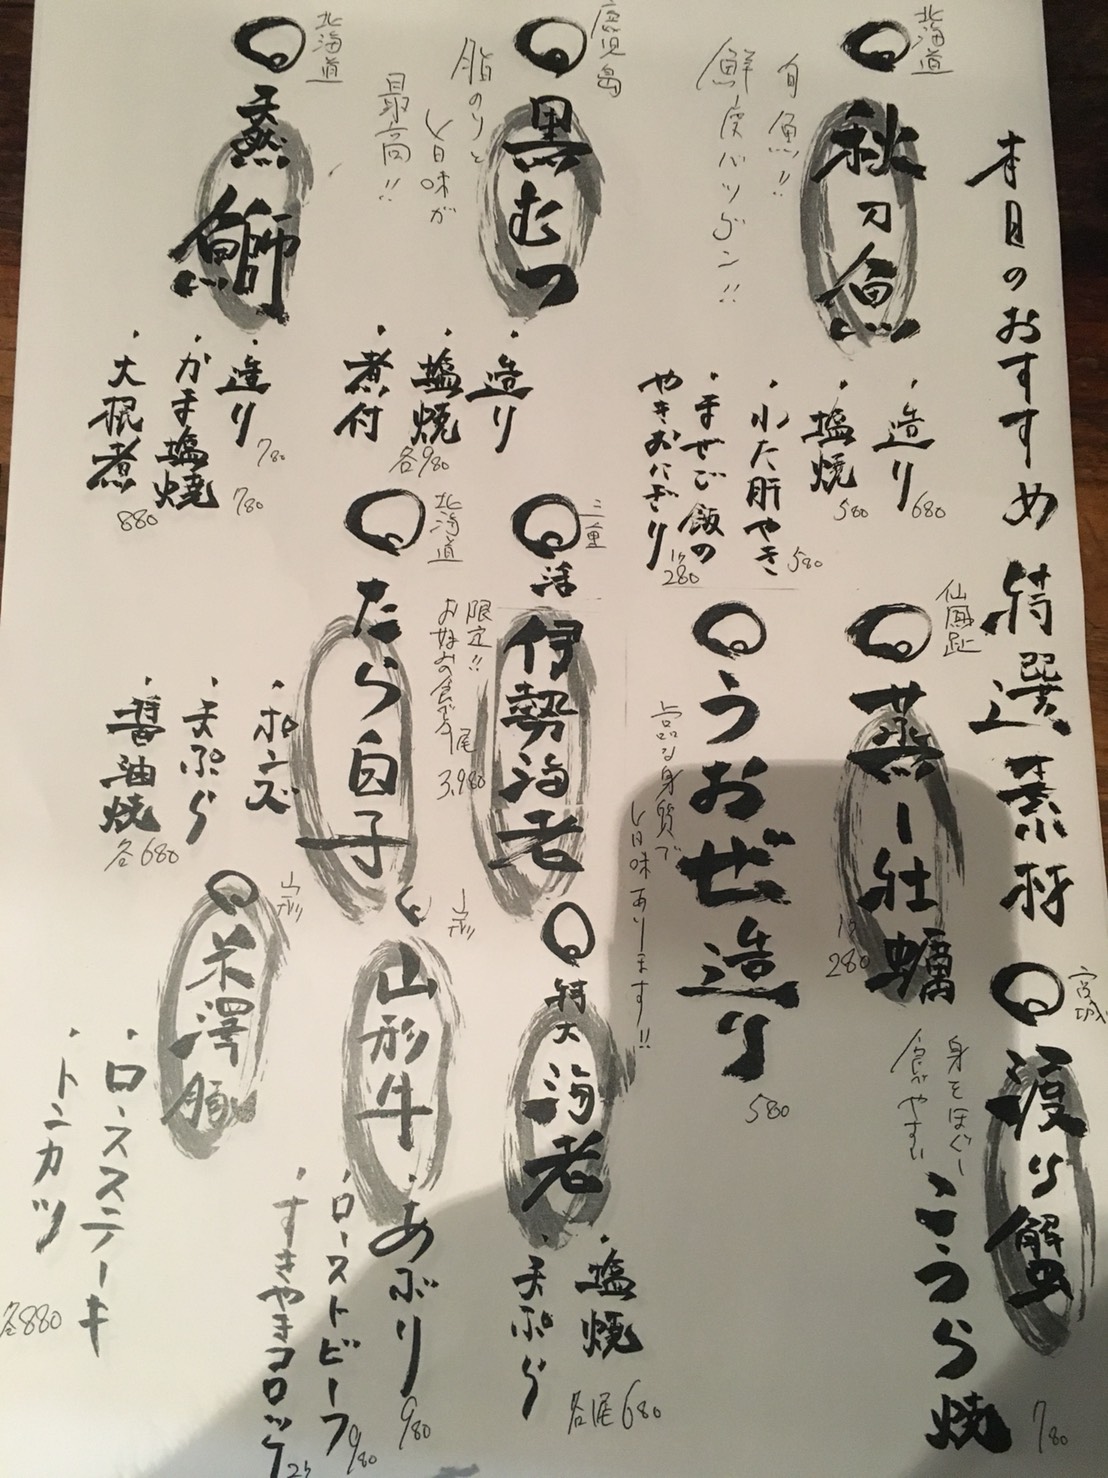 本日のおすすめ 特選素材
北海道
秋刀魚
旬魚!!
鮮度バツグン!!
・造り 680
・塩焼 580
・小た肝やき 580
・まぜご飯の
やきおにぎり 1ケ 280
鹿児島
黒むつ
脂のりと
旨味が
最高!!
・造り
・塩焼
・煮付
各980
北海道
天然 鰤
・造り 780
・かま塩焼 780
・大根煮 880
宮城
渡り蟹
身をほぐし
食べやすい
こうら焼 780
仙鳳趾
蒸し牡蠣
1ケ 280
うおぜ造り
上品な身質で
旨味あります!!
580
三重
活 伊勢海老
限定!!
お好みの食べ方
尾 3,980
北海道
たら白子
・ポンズ
・天ぷら
・醤油焼
各680
特大 海老
・塩焼
・天ぷら
各尾680
山形
山形牛
・あぶり 980
・ローストビーフ 980
・すきやきコロッケ 2ケ
山形
米澤豚
・ロースステーキ
・トンカツ
各880